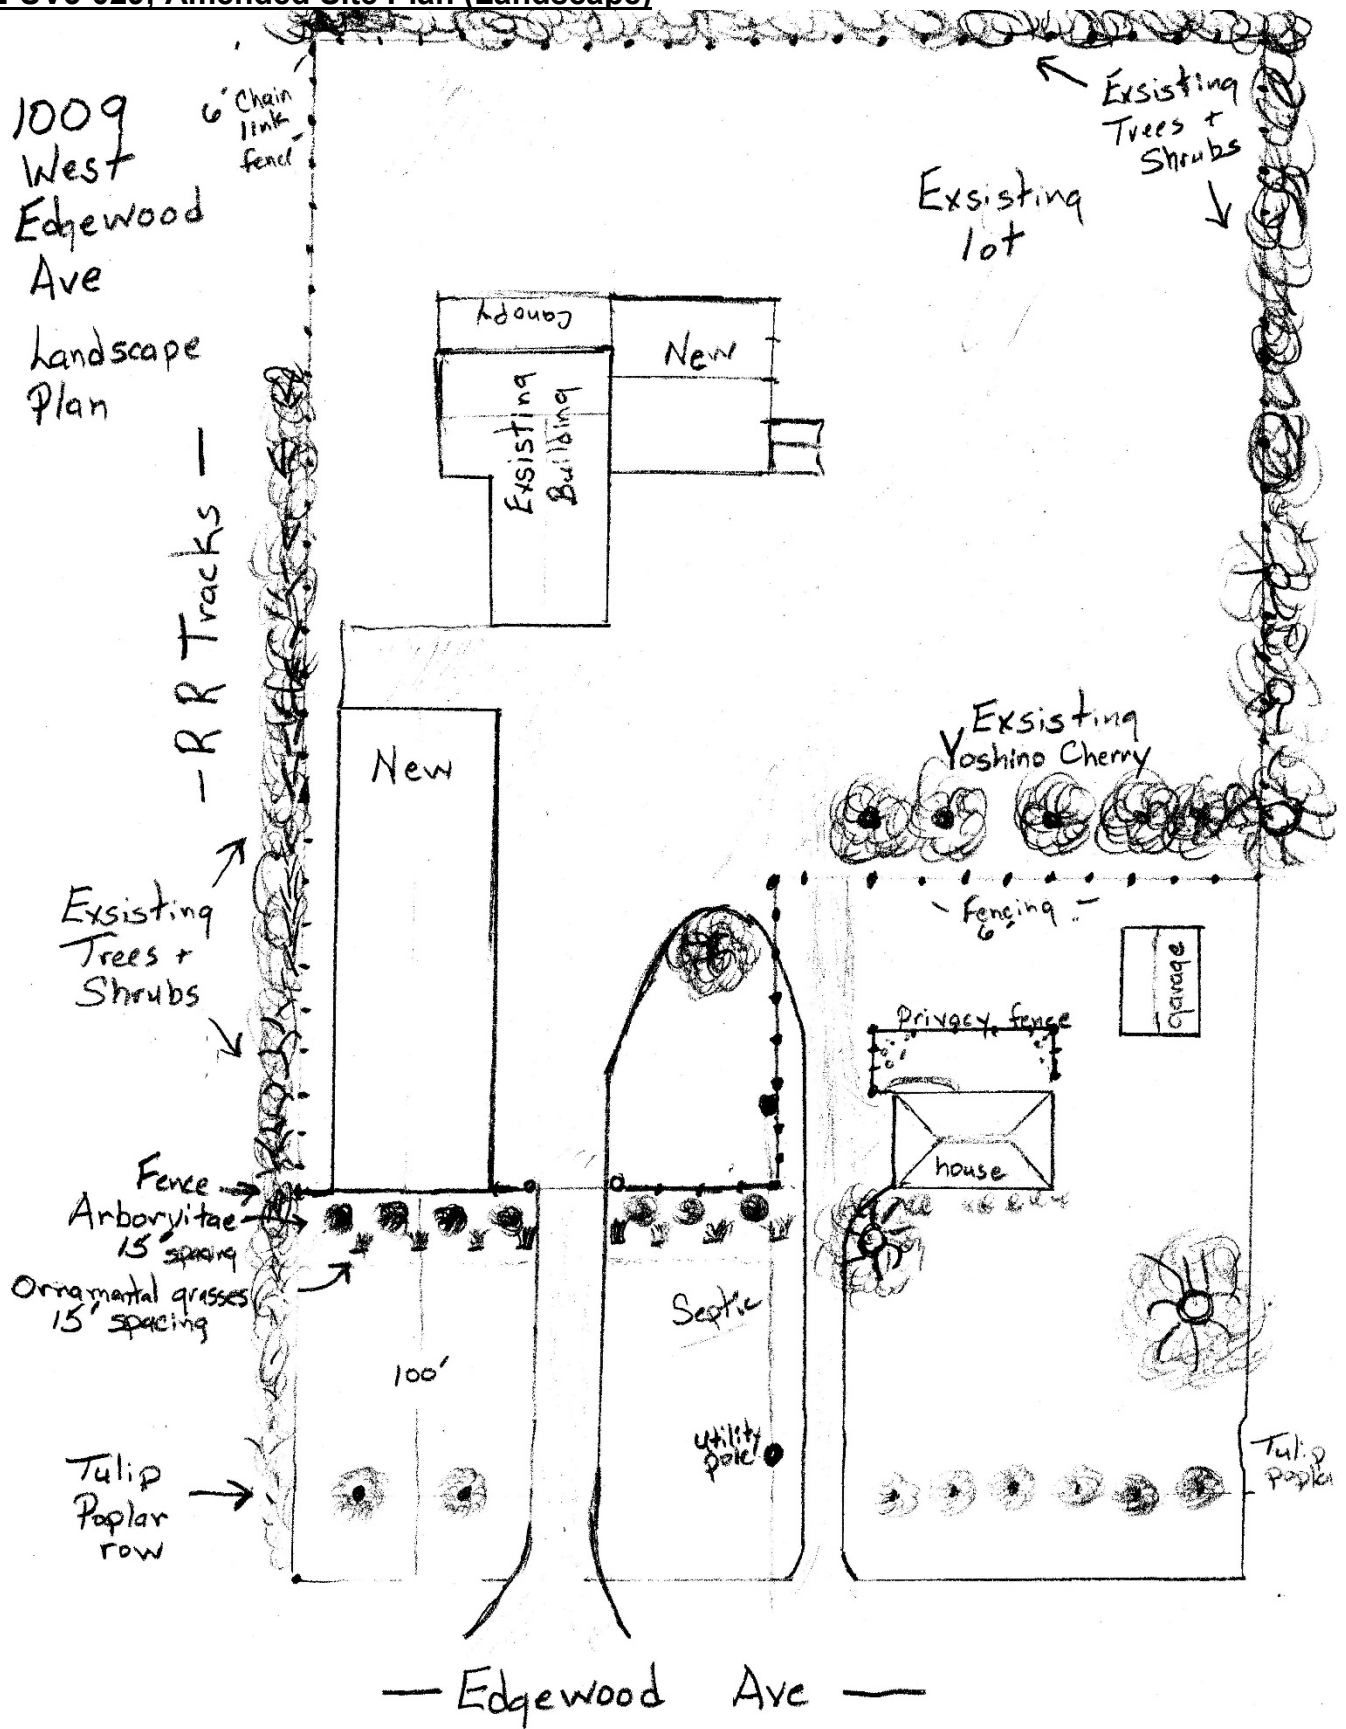 Amended Site Plan (Landscape)
1009
West
Edgewood
Ave
Landscape
Plan
6' Chain
link
fence
Exsisting
Trees +
Shrubs
Exsisting
lot
Canopy
New
Exsisting
Building
- RR Tracks -
New
Exsisting
Yoshino Cherry
- Fencing -
6'
garage
Privacy fence
house
Exsisting
Trees +
Shrubs
Fence
Arborvitae
15' spacing
Ornamental grasses
15' spacing
Septic
100'
utility
pole
Tulip
Poplar
row
Tulip
poplar
- Edgewood Ave -